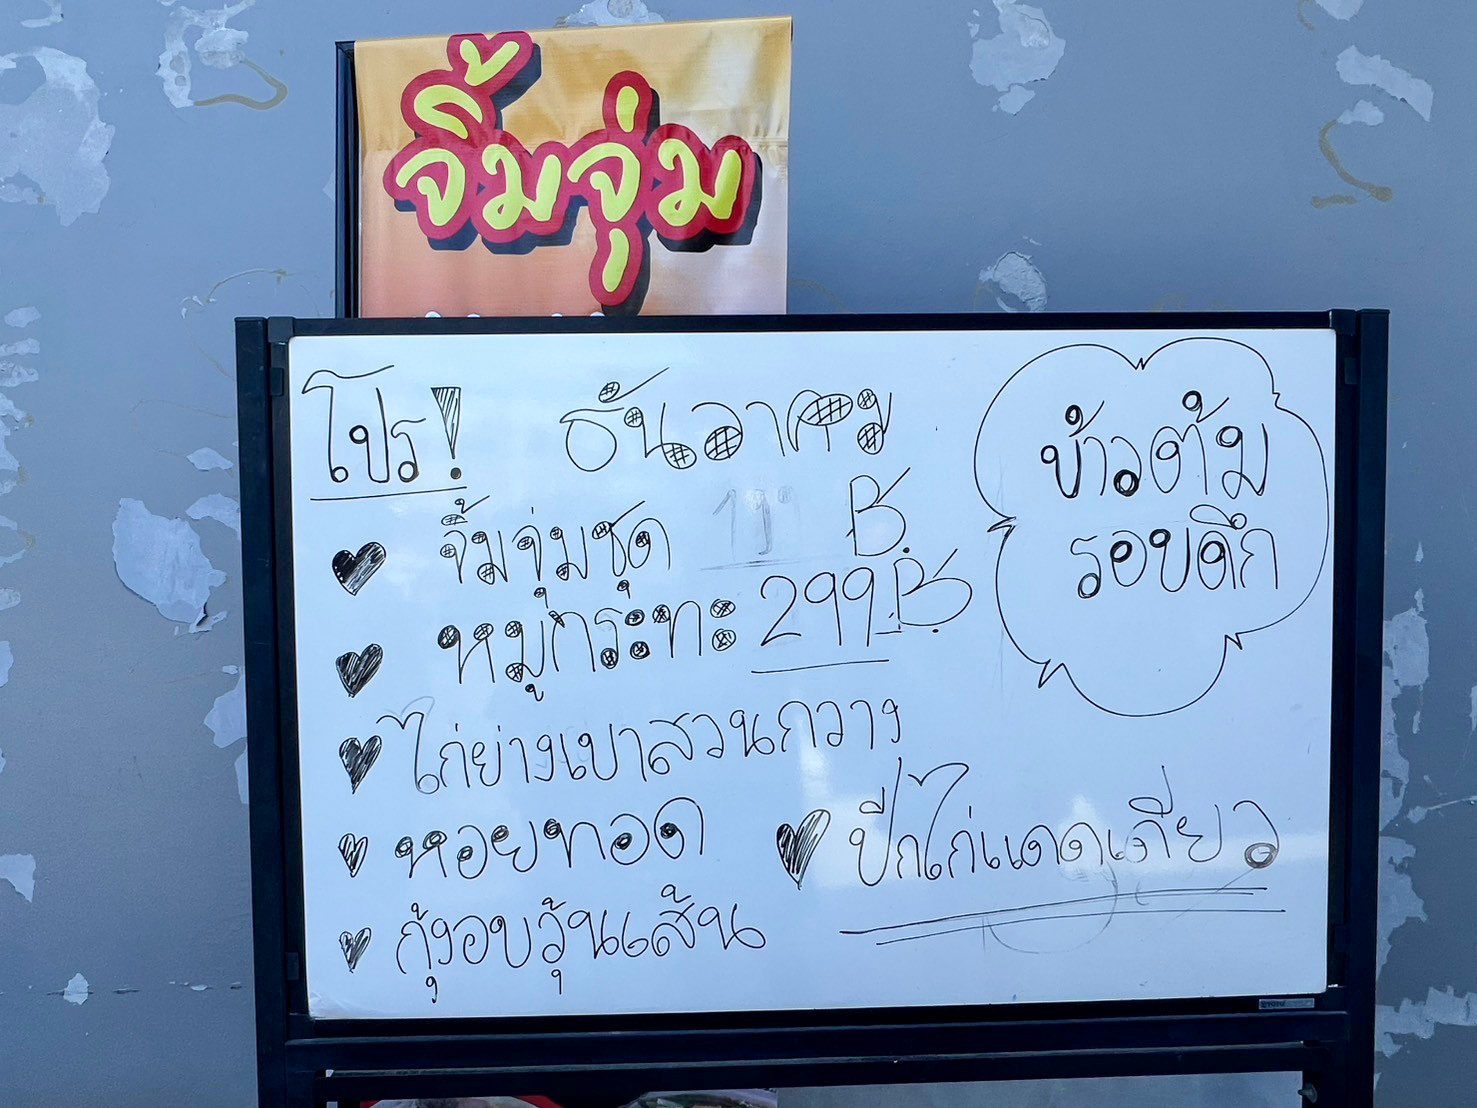 จิ้มจุ่ม
โปร! ธันวาคม
จิ้มจุ่มชุด B.
หมูกระทะ 299.B.
ไก่ย่างเขาสวนกวาง
หอยทอด
กุ้งอบวุ้นเส้น
ปีกไก่แดดเดียว
ข้าวต้ม
รอบดึก